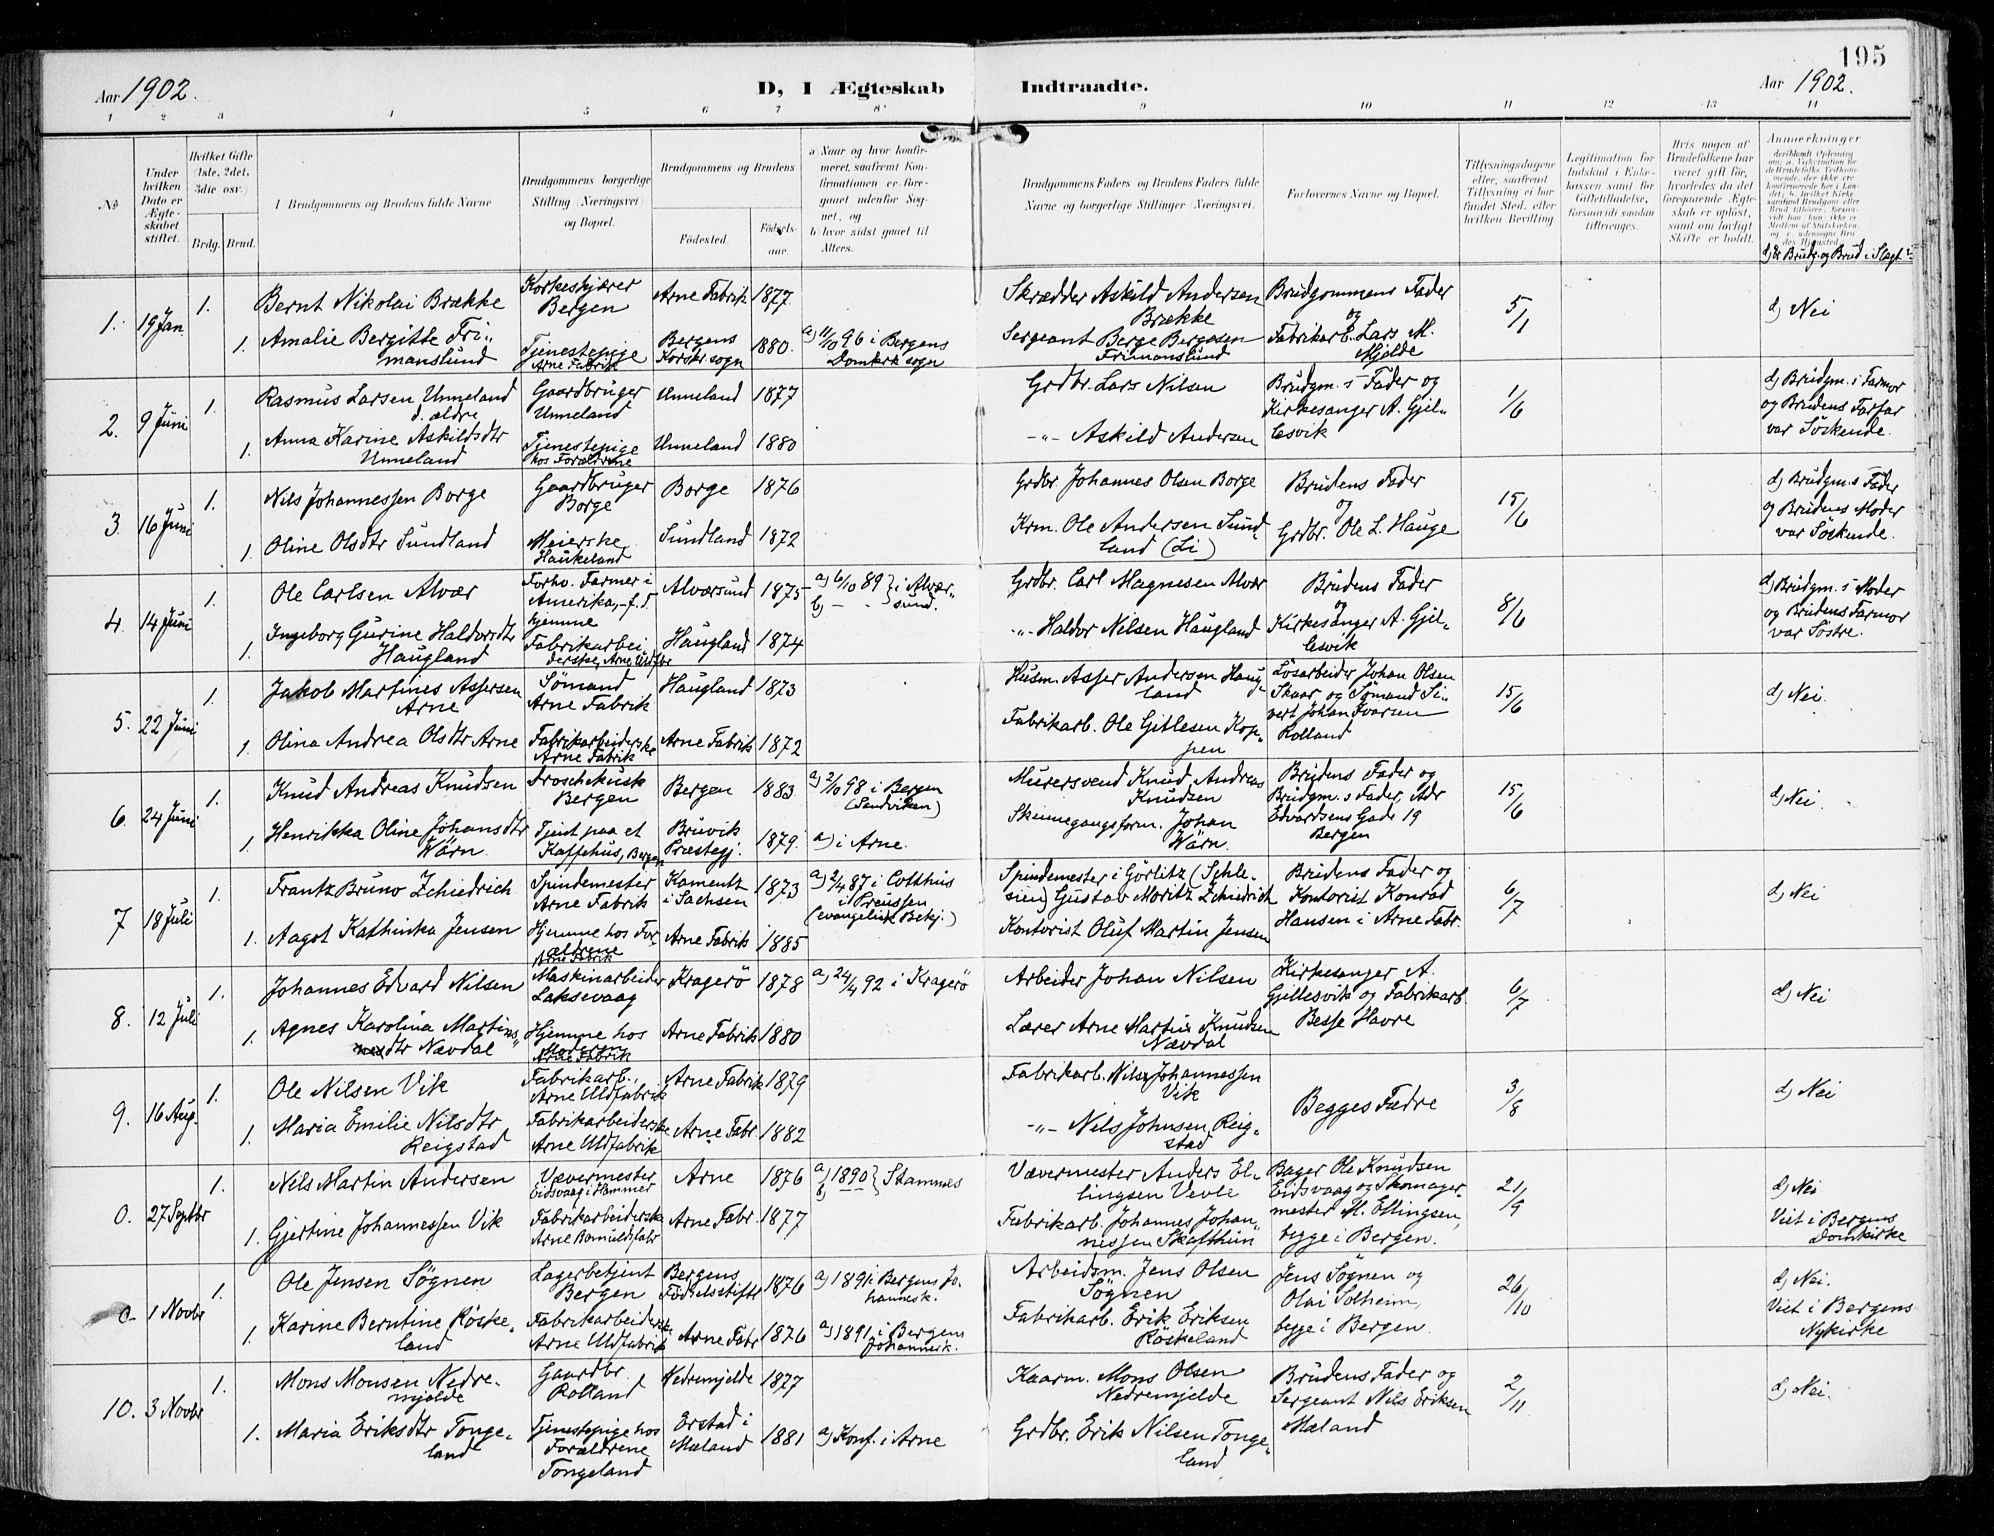 195
Aar 1902.
D, I Ægteskab Indtraadte.
Aar 1902.
1 2 3 4 5 6 7 8 9 10 11 12 13 14
No
Under hvilken Dato er Ægteskabet stiftet.
Hvilket Gifte (1ste, 2det, 3die osv.)
Brdg. Brud.
I Brudgommens og Brudens fulde Navne
Brudgommens borgerlige Stilling (Næringsvei) og Bopæl.
Brudgommens og Brudens
Fødested.
Fødselsaar.
a Naar og hvor konfirmeret, saafremt Konfirmationen er foregaaet udenfor Sognet, og
b hvor sidst gaaet til Alters.
Brudgommens Faders og Brudens Faders fulde Navne og borgerlige Stillinger (Næringsvei).
Forlovernes Navne og Bopæl.
Tillysningsdagene eller, saafremt Tillysning ei har fundet Sted, efter hvilken Bevilling
Legitimation for Indskud i Enkekassen samt for Giftetilladelse, forsaavidt saadan tiltrænges.
Hvis nogen af Brudefolkene har været gift før, hvorledes da det foregaaende Ægteskab er opløst, samt om lovligt Skifte er holdt.
Anmerkninger
d) Er Brudg. og Brud i Slægt?
1. 19 Jan 1. Bernt Nikolai Brække
Korkeskjærer Bergen
Arne Fabrik 1877.
Skrædder Askild Andersen Brække
Brudgommens Fader og
5/1
d) Nei
1. Amalie Bergitte Frimanslund
Tjenestepige Arne Fabrik
Bergens Korskr. sogn 1880.
a) 11/10 96 i Bergens Domkirk. sogn
Sergeant Berge Bergesen Frimanslund
Fabrikarb. Lars M. Mjelde
2. 9 Juni 1. Rasmus Larsen Unneland d. ældre
Gaardbruger Unneland
Unneland 1877
Grdbr. Lars Nilsen
Brudgm.s Fader og Kirkesanger A. Gjillesvik
1/6
d) Brudgm.s Farmor og Brudens Farfar var Söskende.
1. Anna Karine Askildsdtr Unneland
Tjenestepige hos Forældrene
Unneland 1880
-"- Askild Andersen
3. 16 Juni 1. Nils Johannessen Borge
Gaardbruger Borge
Borge 1876
Grdbr. Johannes Olsen Borge
Brudens Fader og
15/6
d) Brudgm.s Fader og Brudens Moder var Söskende.
1. Oline Olsdtr Sundland
Meierske Haukeland
Sundland 1872
Krm. Ole Andersen Sundland (Li)
Grdbr. Ole L. Hauge
4. 14 Juni 1. Ole Carlsen Alvær
Forhv. Farmer i Amerika, f.t. hjemme
Alværsund 1875
a) 6/10 89 } i Alværsund.
b) - -
Grdbr. Carl Magnesen Alvær
Brudens Fader og
8/6
d) Brudgm.s Moder og Brudens Farmor var Söstre.
1. Ingeborg Gurine Haldorsdtr Haugland
Fabrikarbeiderske, Arne Uldfbr
Haugland 1874
-"- Haldor Nilsen Haugland
Kirkesanger A. Gjillesvik
5. 22 Juni 1. Jakob Martines Assersen Arne
Sömand Arne Fabrik
Haugland 1873
Husm. Asser Andersen Haugland
Lösarbeider Johan Olsen Skaar og Sömand Sivert Johan Ivarsen Rolland
15/6
d) Nei.
1. Olina Andrea Olsdtr Arne
Fabrikarbeiderske Arne Fabrik
Arne Fabrik 1872
Fabrikarb. Ole Gitlesen Koppen
6. 24 Juni 1. Knud Andreas Knudsen
Droschekusk Bergen
Bergen 1883
a) 2/10 98 i Bergen (Sandviken)
Murersvend Knud Andreas Knudsen
Brudens Fader og Brudgm.s Fader, Adr Edvardsens Gade 19 Bergen
15/6
d) Nei.
1. Henrikka Oline Johansdtr Wärn
Tjent paa et Kaffehus, Bergen
Bruvik Præstegj. 1879.
a) i Arne.
Skinnegangsform. Johan Wärn.
7 18 Juli 1. Frantz Bruno Zchiedrich
Spindemester Arne Fabrik
Kamentz i Sachsen 1873
a) 2/4 87 i Cotthus i Preussen (evangelisk Bekj.)
Spindemester i Görlitz (Schlesien) Gustav Moritz Zchiedrich
Brudens Fader og Kontorist Konrad Hansen i Arne Fabr.
6/7
d) Nei
1. Aagot Kathinka Jensen
Hjemme hos Forældrene Arne Fabrik
Arne Fabrik 1885
Kontorist Oluf Martin Jensen
8. 12 Juli 1. Johannes Edvard Nilsen
Maskinarbeider Laksevaag
Kragerö 1878
a) 24/4 92 i Kragerö
Arbeider Johan Nilsen
Kirkesanger A. Gjillesvik og Fabrikarb. Besse Havre
6/7
d) Nei
1. Agnes Karolina Martinsdtr Nævdal
Hjemme hos Moderen Arne Fabrik
Arne Fabrik 1880
Lærer Arne Martin Knudsen Nævdal
9. 16 Aug. 1. Ole Nilsen Vik
Fabrikarb., Arne Uldfabrik
Arne Fabrik 1879
Fabrikarb. Nils Johannessen Vik
Begges Fædre
3/8
d) Nei
1. Maria Emilie Nilsdtr Reigstad
Fabrikarbeiderske Arne Uldfabrik
Arne Fabr 1882
-"- Nils Johnsen Reigstad
0. 27 Septbr 1. Nils Martin Andersen
Vævermester Eidsvaag i Hammer
Arne 1876
a) 1890 } Stamnes
b) --
Vævermester Anders Ellingsen Vevle
Bager Ole Knudsen Eidsvaag og Skomagermester M. Ellingsen, begge i Bergen.
21/9
d) Nei
Viet i Bergens Domkirke
1. Gjertine Johannessen Vik
Fabrikarbeiderske Arne Bomuldsfabr
Arne Fabr. 1877
Fabrikarb. Johannes Johannessen Skafthun
0. 1 Novbr 1. Ole Jensen Sögnen
Lagerbetjent Bergen
Bergens Födselsstiftl 1876
a) 1891 i Bergens Johannesk.
Arbeidsm. Jens Olsen Sögnen
Jens Sögnen og Olai Solheim, begge i Bergen.
26/10
d) Nei.
Viet i Bergens Nykirke
1. Karine Berntine Röskeland
Fabrikarbeiderske Arne Uldfabrik
Arne Fabr 1876
a) 1891 i Bergens Johannesk.
Fabrikarb. Erik Eriksen Röskeland
10. 3 Novbr 1. Mons Monsen Nedremjelde
Gaardbr. Rolland
Nedremjelde 1877
Kaarm. Mons Olsen Nedremjelde
Brudens Fader og Sergeant Nils Eriksen Mæland
2/11
d) Nei.
1. Maria Eriksdtr Tongeland
Tjenestepige hos Forældrene Tongeland
Erstad i Mæland 1881
a) Konf. i Arne
Grdbr. Erik Nilsen Tongeland